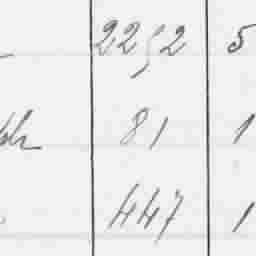 2252 5
81 1
447 1